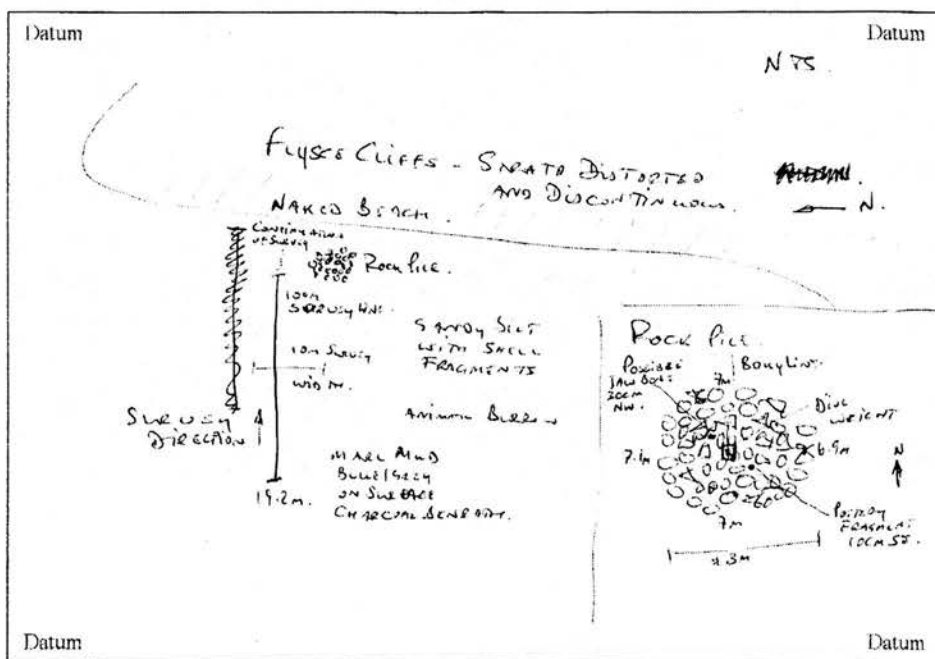 Datum
Datum
NTS.
FLYSCE CLIFFS - STRATA DISTORTED
AND DISCONTINUOUS.
N.
NAKED BEACH.
CONTINUATION
OF SURVEY
ROCK PILE.
100M
SURVEY LINE.
10M SURVEY
WIDTH.
SANDY SILT
WITH SHELL
FRAGMENTS
ANIMAL BURROW
SURVEY
DIRECTION
MARL MUD
BLUE/GREY
ON SURFACE
CHARCOAL BENEATH.
19.2m.
ROCK PILE.
POSSIBLE
JAW BONE
30CM
NW.
7m
DIVE
WEIGHT
7.1m
6.9m
N
7m
POTTERY
FRAGMENT
10CM
Datum
Datum